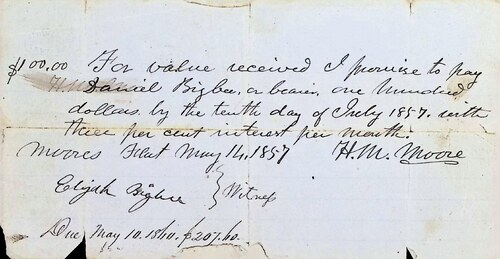 $100.00 For value received I promise to pay
Daniel Bigbee, or bearer, one hundred
dollars by the tenth day of July 1857. with
three per cent interest per month.
Moores May 14, 1857 H.M. Moore
Elijah } Witness
Due May 10. 1860. $207.60.